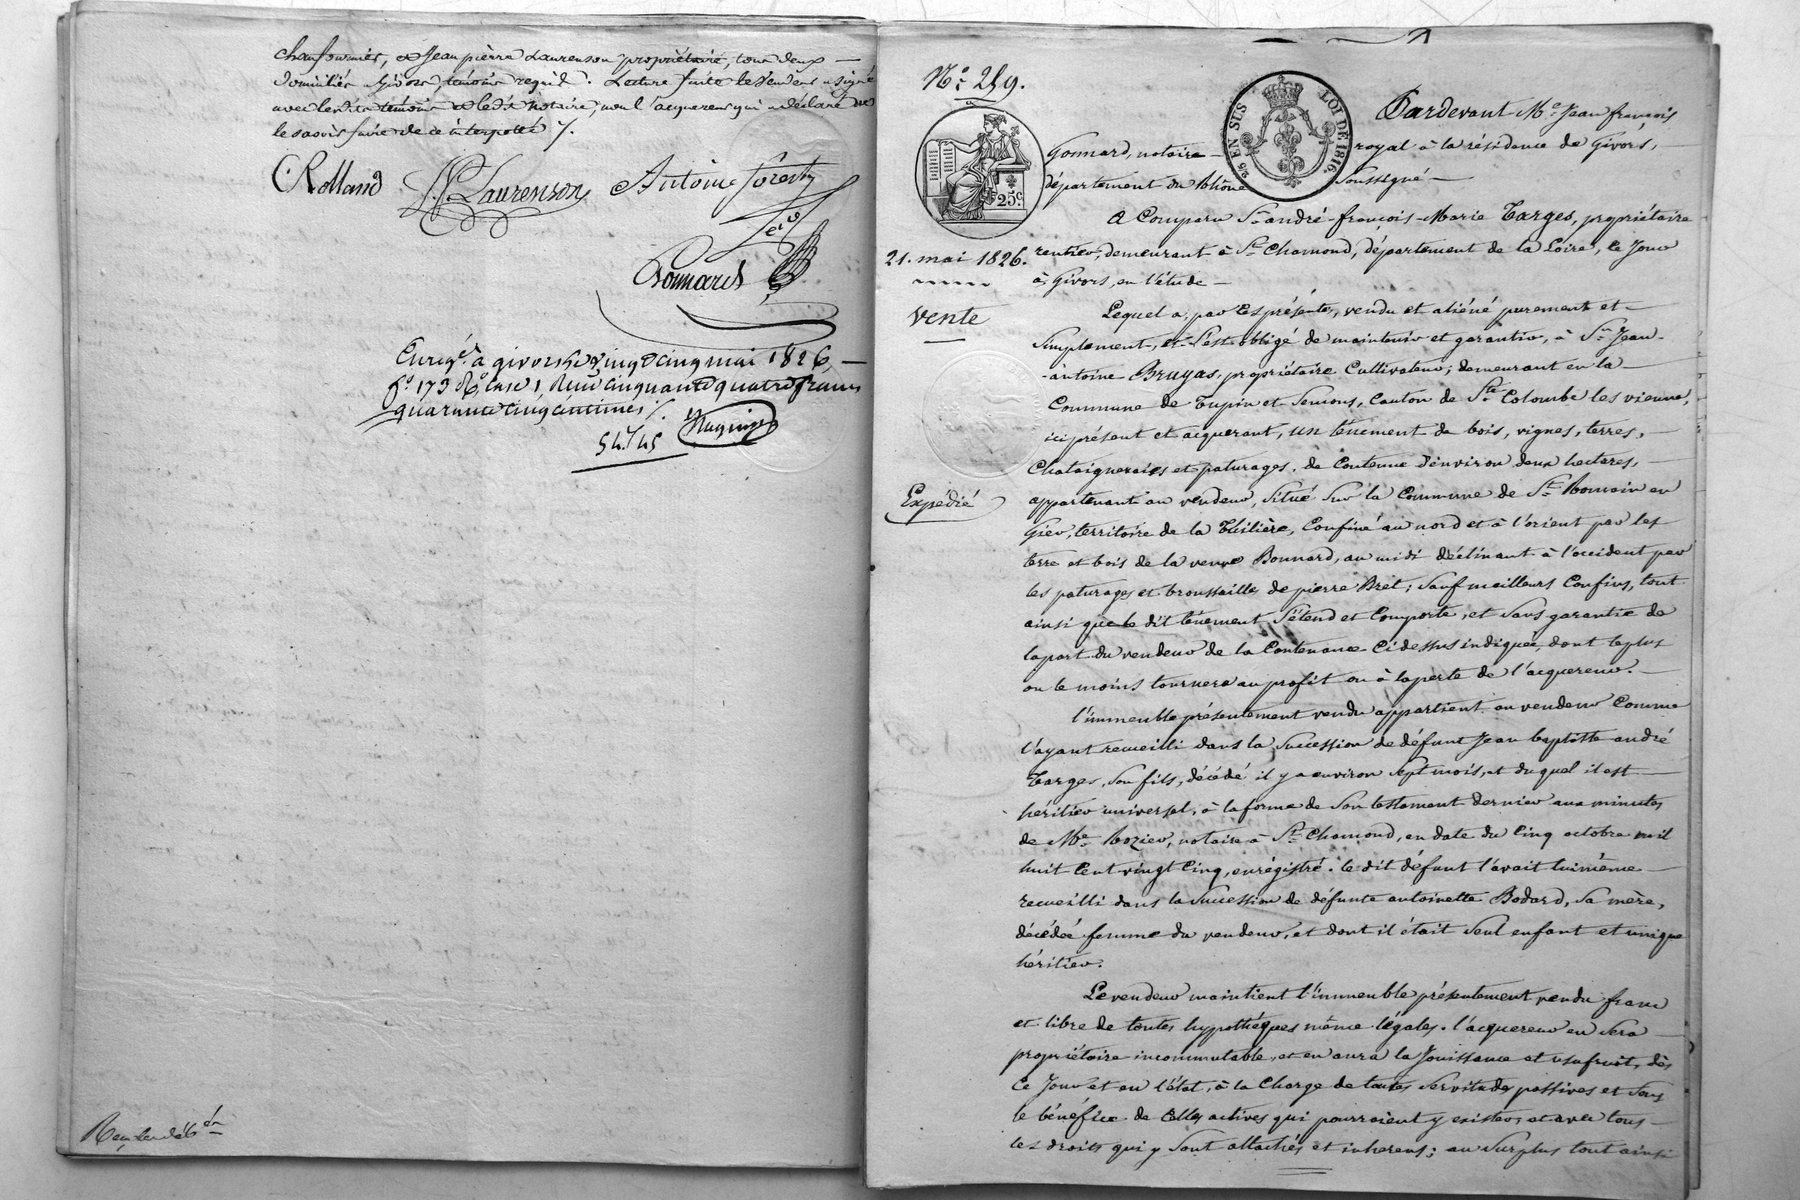 chaufournier, et Jean pierre Laurenson propriétaire, tous deux
domiciliés à Givors, témoins requis. Lecture faite le Vendeur a signé
avec lesdits témoins et ledit notaire, non l'acquereur qui a déclaré ne
le savoir faire de ce interpellé /.
C. Rolland J. P. Laurenson Antoine forest
Gonnard
Enregé. à givors le vingt cinq mai 1826,
fo. 173 Ro. case 1, Reçu cinquante quatre francs
quarante cinq centimes /.
54f 45
No. 259.
25 EN SUS
LOI DE 1816.
25c
21. mai 1826.
vente
Expédié
Pardevant Me. Jean françois
Gonnard, notaire royal à la résidence de Givors,
département du Rhône Soussigné
A Comparu Sr. andré-françois-Marie Targes, propriétaire
rentier, demeurant à St. Chamond, département de la Loire, ce Jour
à Givors, en l'étude
Lequel a, par les présentes, vendu et aliéné purement et
Simplement, et s'est obligé de maintenir et garantir, à Sr. Jean-
antoine Bruyas, propriétaire Cultivateur, demeurant en la
Commune de Tupin et Semons, Canton de Ste. Colombe les vienne,
ici présent et acquerant, un tènement de bois, vignes, terres,
Chataigneraies et paturages, de Contenue d'environ deux hectares,
appartenant au vendeur, situé sur la Commune de St. Romain en
Gier, territoire de la Thilière, Confiné au nord et à l'orient par les
terre et bois de la veuve Bonnard, au midi déclinant à l'occident par
les paturages et broussailles de pierre Bret; sauf meilleurs Confins, tout
ainsi que le dit tènement s'étend et Comporte, et sans garantie de
la part du vendeur de la Contenance Ci dessus indiquée, dont le plus
ou le moins tournera au profit ou à la perte de l'acquereur.
l'immeuble présentement vendu appartient au vendeur Comme
l'ayant recueilli dans la Succession de défunt Jean baptiste andré
Targes, son fils, décédé il y a environ sept mois, et duquel il est
héritier universel, à la forme de son testament dernier aux minutes
de Me. Rozier, notaire à St. Chamond, en date du Cinq octobre mil
huit Cent vingt Cinq, enrégistré. le dit défunt l'avait lui même
recueilli dans la Succession de défunte antoinette Bodard, sa mère,
décédée femme du vendeur, et dont il était seul enfant et unique
héritier.
Le vendeur maintient l'immeuble présentement vendu franc
et libre de toutes hypothèques même légales. l'acquereur en sera
propriétaire incommutable, et en aura la Jouissance et usufruit, dès
Ce Jour et en l'état, à la Charge de toutes servitudes passives et sous
le bénéfice de Celles actives qui pourraient y exister, et avec tous
les droits qui y sont attachés et inherens; au surplus tout ainsi